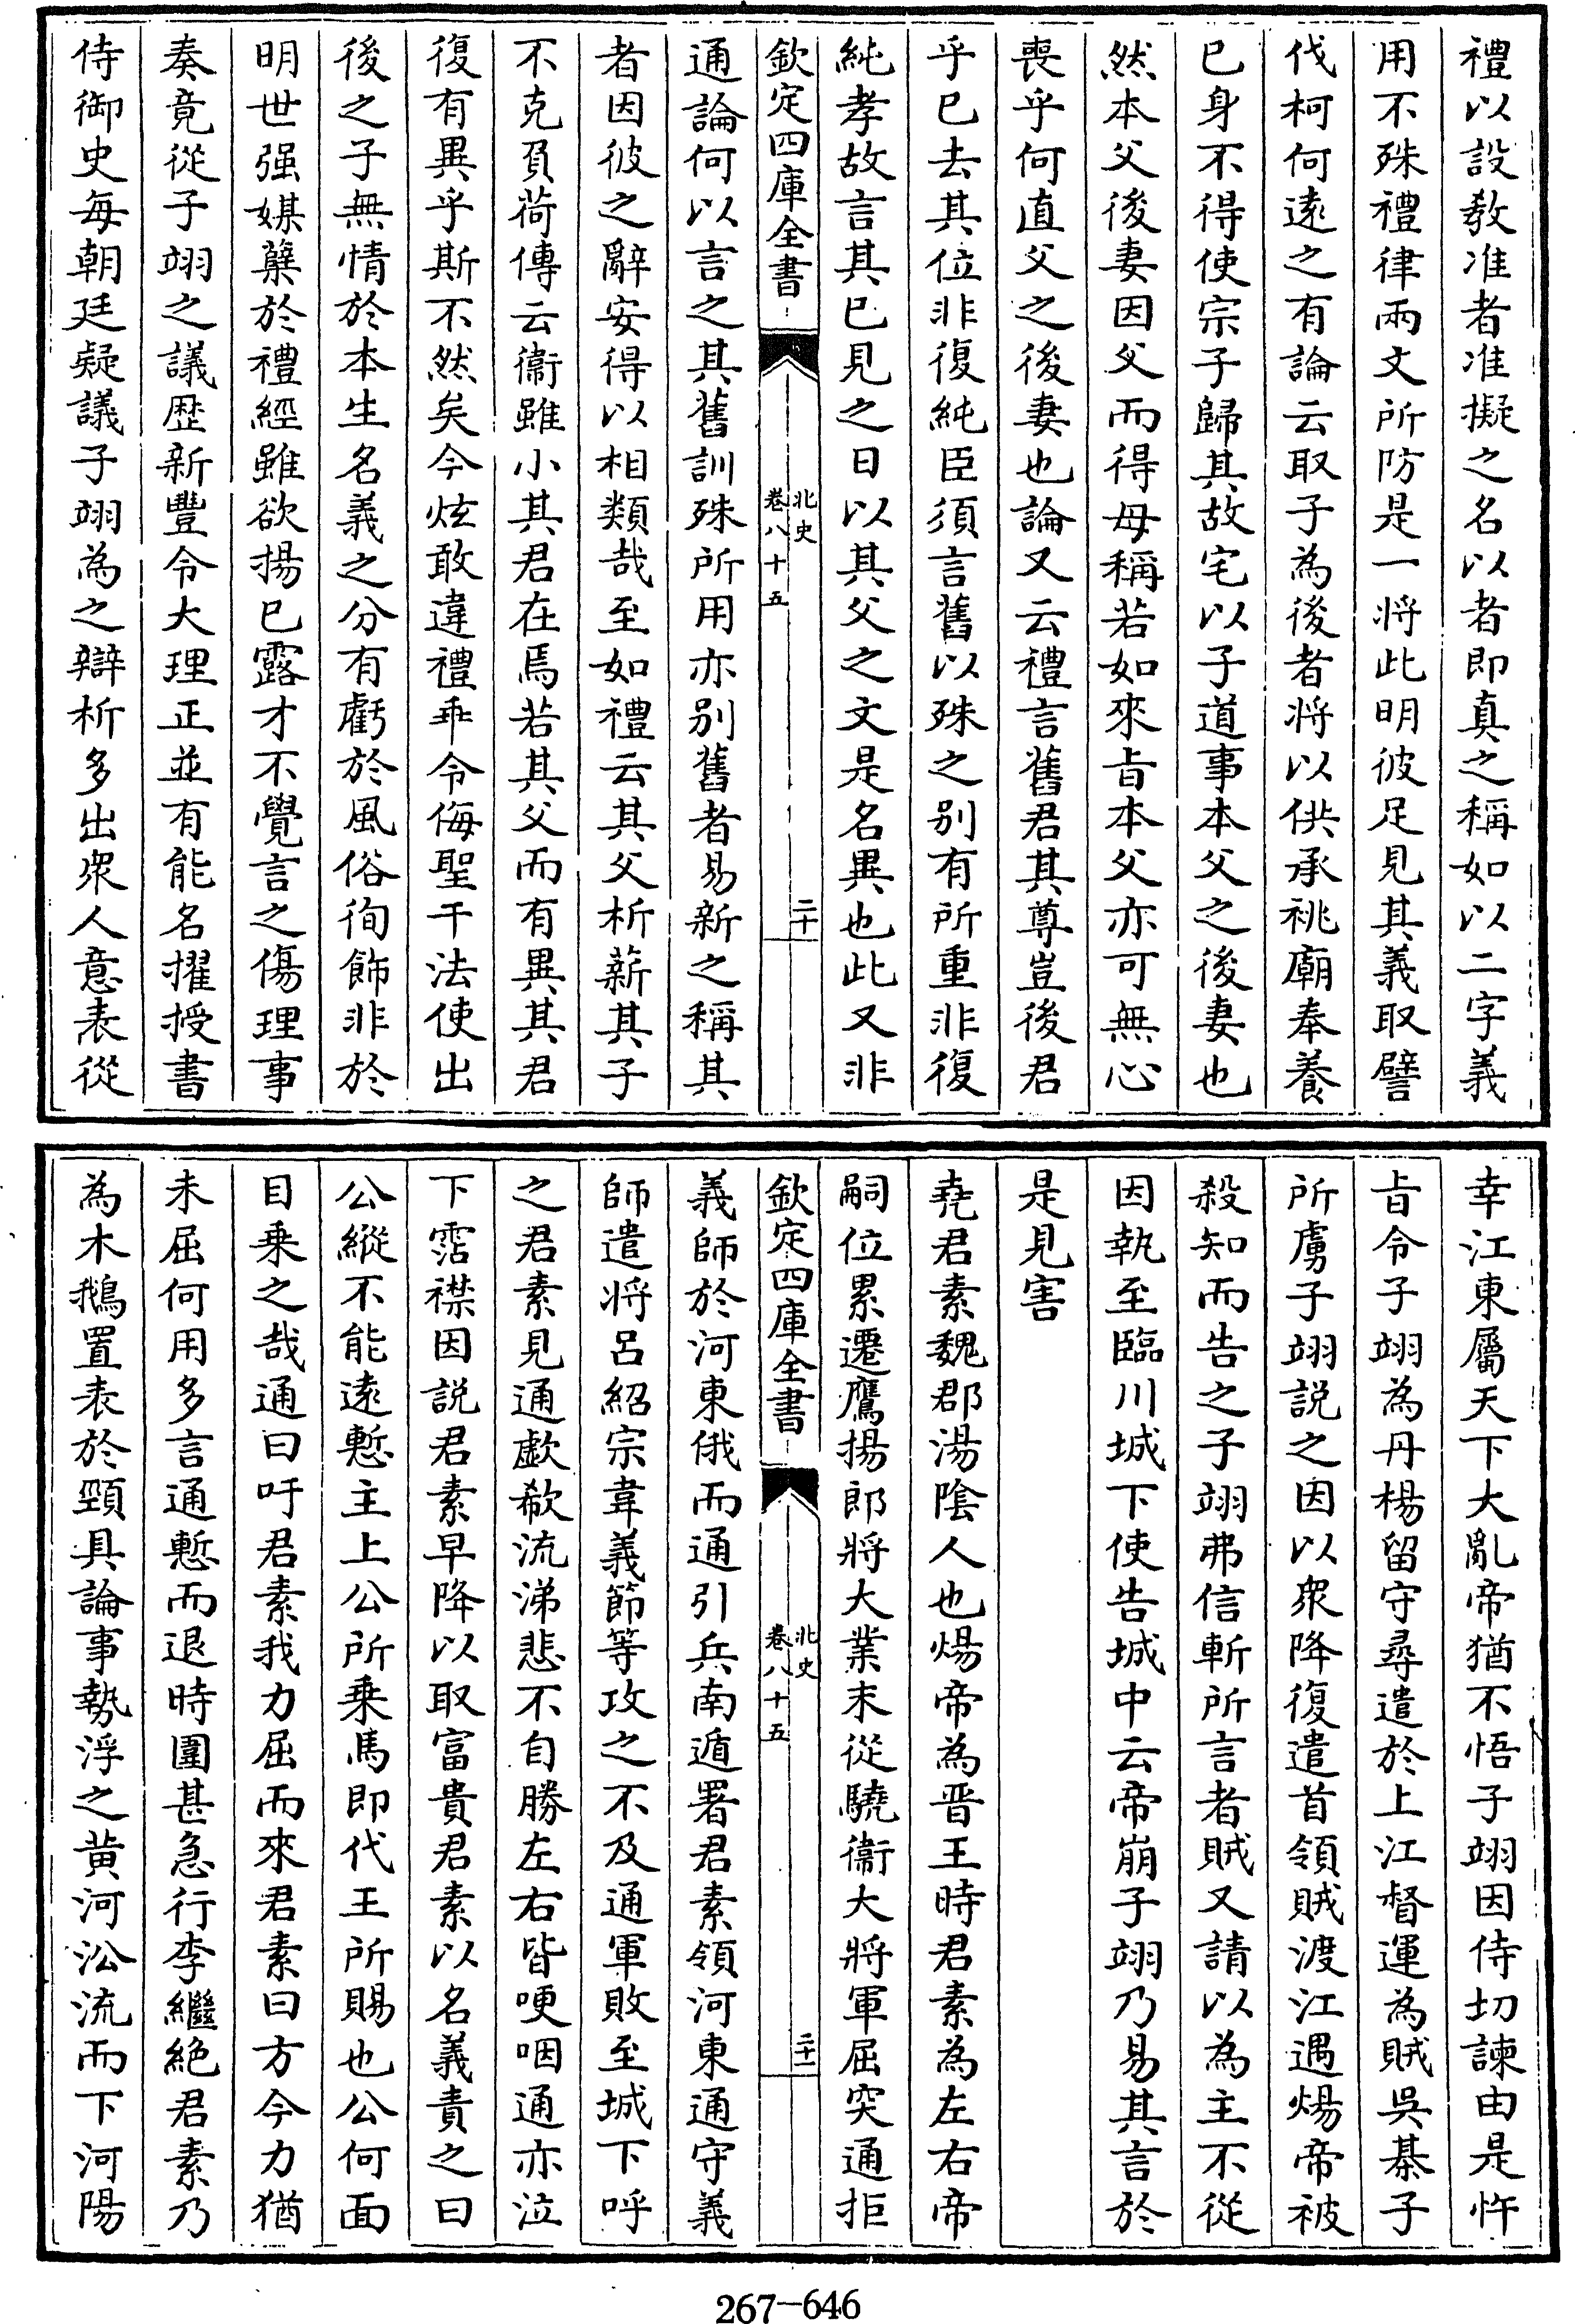 禮以設教准者准擬之名以者即真之稱如以二字義
用不殊禮律兩文所防是一將此明彼足見其義取譬
伐柯何遠之有論云取子為後者將以供承祧廟奉養
已身不得使宗子歸其故宅以子道事本父之後妻也
然本父後妻因父而得母稱若如來㫖本父亦可無心
喪乎何直父之後妻也論又云禮言舊君其尊豈後君
乎已去其位非復純臣須言舊以殊之别有所重非復
純孝故言其已見之日以其父之文是名異也此又非
欽定四庫全書
北史
卷八十五
二十
通論何以言之其舊訓殊所用亦别舊者易新之稱其
者因彼之辭安得以相類哉至如禮云其父析薪其子
不克負荷傳云衞雖小其君在焉若其父而有異其君
復有異乎斯不然矣今炫敢違禮乖令侮聖干法使出
後之子無情於本生名義之分有虧於風俗徇飾非於
明世强媒蘖於禮經雖欲揚已露才不覺言之傷理事
奏竟從子翊之議歴新豐令大理正並有能名擢授書
侍御史每朝廷疑議子翊為之辯析多出衆人意表從
幸江東屬天下大亂帝猶不悟子翊因侍切諫由是忤
㫖令子翊為丹楊留守尋遣於上江督運為賊吳棊子
所虜子翊説之因以衆降復遣首領賊渡江遇煬帝被
殺知而告之子翊弗信斬所言者賊又請以為主不從
因執至臨川城下使告城中云帝崩子翊乃易其言於
是見害
堯君素魏郡湯陰人也煬帝為晋王時君素為左右帝
嗣位累遷鷹揚郎將大業末從驍衞大將軍屈突通拒
欽定四庫全書
北史
卷八十五
二十一
義師於河東俄而通引兵南遁署君素領河東通守義
師遣將呂紹宗韋義節等攻之不及通軍敗至城下呼
之君素見通歔欷流涕悲不自勝左右皆哽咽通亦泣
下霑襟因説君素早降以取富貴君素以名義責之曰
公縱不能遠慙主上公所乗馬即代王所賜也公何面
目乗之哉通曰吁君素我力屈而來君素曰方今力猶
未屈何用多言通慙而退時圍甚急行李繼絶君素乃
為木鵝置表於頸具論事勢浮之黄河沿流而下河陽
267-646